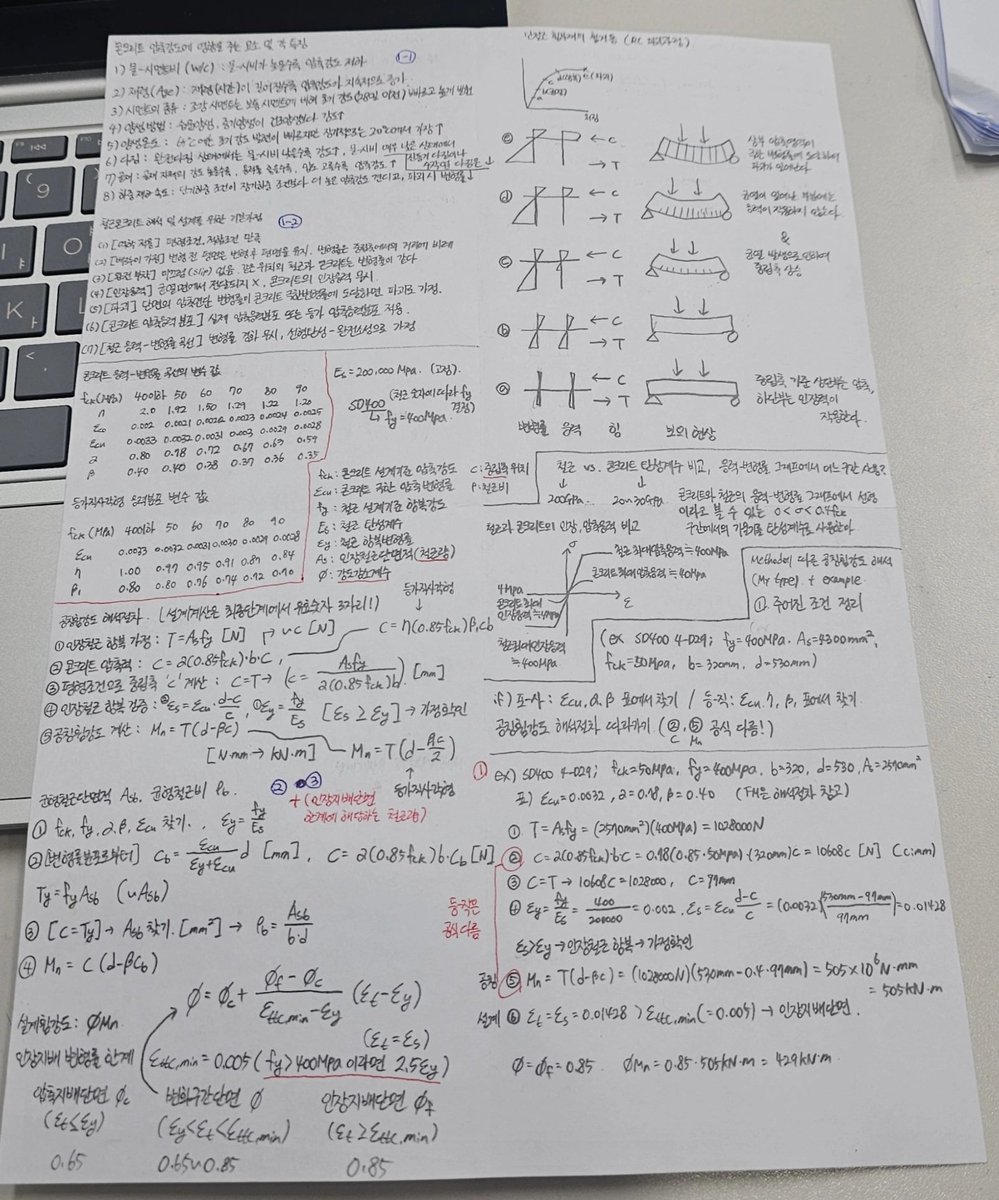 콘크리트 압축강도에 영향을 주는 요소 및 각 특징
1-1
1) 물-시멘트비 (W/C) : 물-시비가 높을수록 압축강도 저하
2) 재령(Age) : 재령(시간)이 길어질수록 압축강도가 지속적으로 증가
3) 시멘트의 종류 : 조강 시멘트는 보통 시멘트에 비해 초기 강도(28일 이전) 빠르고 높게 발현
4) 양생방법 : 습윤양생, 증기양생이 건조양생보다 강도↑
5) 양생온도 : 초기 강도 발현이 빠르지만 장기적으로는 20℃에서 가장↑
6) 다짐 : 완전다짐 상태에서는 물-시비 낮을수록 강도↑, 물-시비 매우 낮은 상태에서
진동기 다짐이나 수작업 다짐은↓
7) 골재 : 골재 자체의 강도 높을수록, 입도 고를수록 압축강도↑
8) 하중 재하 속도 : 단기하중 조건이 장기하중 조건보다 더 높은 압축강도 견디고, 파괴 시 변형률↓
철근콘크리트 해석 및 설계를 위한 기본가정
1-2
(1) [역학 적용] 평형조건, 적합조건 만족
(2) [베르누이 가정] 변형 전 평면은 변형 후 평면을 유지. 변형률은 중립축에서의 거리에 비례
(3) [완전 부착] 미끄럼(slip) 없음. 같은 위치의 철근과 콘크리트는 변형률이 같다
(4) [인장응력] 균열면에서 전달되지 X, 콘크리트의 인장응력 무시.
(5) [파괴] 단면의 압축연단 변형률이 콘크리트 극한변형률에 도달하면 파괴로 가정.
(6) [콘크리트 압축응력 분포] 실제 압축응력분포 또는 등가 압축응력분포 적용.
(7) [철근 응력-변형률 곡선] 변형률 경화 무시, 선형탄성-완전소성으로 가정
콘크리트 응력-변형률 곡선의 변수 값
fck(MPa) 40이하 50 60 70 80 90
n 2.0 1.92 1.50 1.29 1.22 1.20
εco 0.002 0.0021 0.0022 0.0023 0.0024 0.0025
εcu 0.0033 0.0032 0.0031 0.003 0.0029 0.0028
α 0.80 0.78 0.72 0.67 0.63 0.59
β 0.40 0.40 0.38 0.37 0.36 0.35
Es = 200,000 MPa. (고정).
SD400 (철근 숫자에 따라 fy 결정)
↳ fy = 400MPa.
등가직사각형 응력분포 변수 값
fck (MPa) 40이하 50 60 70 80 90
εcu 0.0033 0.0032 0.0031 0.0030 0.0029 0.0028
η 1.00 0.97 0.95 0.91 0.87 0.84
β1 0.80 0.80 0.76 0.74 0.72 0.70
fck : 콘크리트 설계기준 압축강도
εcu : 콘크리트 극한 압축변형률
fy : 철근 설계기준 항복강도
Es : 철근 탄성계수
εy : 철근 항복변형률
As : 인장철근단면적(철근량)
Ø : 강도감소계수
C : 중립축 위치
ρ : 철근비
공칭휨강도 해석절차 (설계계산은 최종단계에서 유효숫자 3자리!)
등가직사각형
① 인장철근 항복 가정 : T = Asfy [N]
② 콘크리트 압축력 : C = α(0.85fck)·b·C, uc [N]
C = η(0.85fck)β1cb
③ 평형조건으로 중립축 'c' 계산 : C=T → (c = Asfy / α(0.85fck)b) [mm]
④ 인장철근 항복 검증 : ⓐ εs = εcu · d-c / c, ⓑ εy = fy / Es [εs ≥ εy] → 가정확인
⑤ 공칭휨강도 계산 : Mn = T(d-βc)
[N·mm → kN·m]
Mn = T(d - β1c / 2)
등가직사각형
균형철근단면적 Asb, 균형철근비 ρb.
② ③
+ (인장지배단면 한계에 해당하는 철근량)
① fck, fy, α, β, εcu 찾기., εy = fy / Es
② [변형률분포로부터] Cb = εcu / εy+εcu d [mm], C = α(0.85fck)b·Cb [N]
Ty = fyAsb (uAsb)
③ [C=Ty] → Asb 찾기. [mm²] → ρb = Asb / b·d
등직은 공식 다름
④ Mn = C(d-βCb)
Ø = Øc + Øf - Øc / εttc,min - εy (εt - εy)
(εt = εs)
설계휨강도 : ØMn
인장지배 변형률 한계 εttc,min = 0.005 (fy > 400MPa 이라면 2.5εy)
압축지배단면 Øc 변화구간단면 Ø 인장지배단면 Øf
(εt ≤ εy) (εy < εt < εttc,min) (εt ≥ εttc,min)
0.65 0.65~0.85 0.85
처짐
ⓔ ← C → T
상부 압축영역이 극한 변형률에 도달하며 파괴가 일어난다.
ⓓ
균열이 일어난 부분에는 응력이 작용하지 않는다.
&
ⓒ ← C → T
균열 발생으로 인하여 중립축 상승
ⓑ ← C → T
ⓐ ← C → T
중립축 기준 상단부는 압축, 하단부는 인장력이 작용한다.
변형률 응력 힘 보의 현상
철근 vs. 콘크리트 탄성계수 비교, 응력-변형률 그래프에서 어느 구간 사용?
200GPa. 20~30GPa.
콘크리트와 철근의 응력-변형률 그래프에서 선형
이라고 볼 수 있는 0<σ<0.4fck
구간에서의 기울기를 탄성계수로 사용한다
철근과 콘크리트의 인장, 압축응력 비교
σ
철근 최대압축응력 ≒ 400MPa
콘크리트 최대 압축응력 ≒ 40MPa
ε
4MPa
콘크리트 최대 인장응력 ≒ 4MPa
철근 최대 인장응력 ≒ 400MPa
Method에 따른 공칭휨강도 해석
(My type) + example
① 주어진 조건 정리
(ex SD400 4-D29; fy=400MPa. As=4300mm²,
fck=30MPa, b=320mm, d=530mm)
if) 포-사 : εcu, α, β 표에서 찾기 / 등-직 : εcu, η, β1 표에서 찾기
공칭휨강도 해석절차 따라가기 (②, ⑤ 공식 다름!)
C Mn
① ex) SD400 4-D29; fck=50MPa, fy=400MPa. b=320, d=530, As=2570mm²
표) εcu = 0.0032, α = 0.78, β = 0.40
① T = Asfy = (2570mm²)(400MPa) = 1028000N
② C = α(0.85fck)b·C = 0.78(0.85·50MPa)·(320mm)C = 10608C [N] (c:mm)
③ C=T → 10608C = 1028000, C = 97mm
④ εy = fy / Es = 400 / 200000 = 0.002, εs = εcu d-c / c = (0.0032)(530mm-97mm / 97mm) = 0.01428
εs > εy → 인장철근 항복 → 가정확인
공칭 ⑤ Mn = T(d-βc) = (1028000N)(530mm-0.4·97mm) = 505×10⁶ N·mm
= 505kN·m
설계 ⑥ εt = εs = 0.01428 > εttc,min (=0.005) → 인장지배단면.
Ø = Øf = 0.85 ØMn = 0.85·505kN·m = 429kN·m.